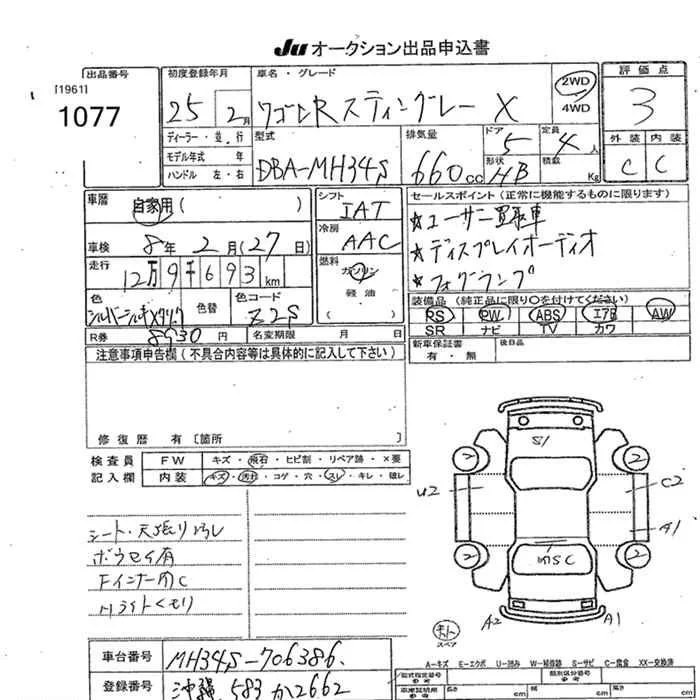 Ju オークション出品申込書
出品番号 初度登録年月 車名・グレード 評価点
[1961]
1077
25 2月 ワゴンR スティングレー X
2WD
4WD
3
外装 内装
C C
ディーラー・並行 型式 排気量 ドア 定員
モデル年式 年
ハンドル 左・右
DBA-MH34S 660cc
5 4人
形状 積載
HB Kg
車歴 自家用( ) シフト IAT
車検 8年2月(27日) 冷房 AAC
走行 12万9千693km 燃料 ガソリン
軽油・
( )
色 色替 色コード Z2S
R券 8930円 名変期限 月 日
セールスポイント(正常に機能するものに限ります)
★ユーザー買取車
★ディスプレイオーディオ
★フォグランプ
装備品(純正品に限り○を付けてください)
PS PW ABS エアB AW
SR ナビ TV カワ
新車保証書 後日品
有・無
注意事項申告欄(不具合内容等は具体的に記入して下さい)
修復歴 有〔箇所 〕
検査員 FW キズ・飛石・ヒビ割・リペア跡・×要
記入欄 内装 キズ・汚れ・コゲ・穴・スレ・キレ・破レ
シート・天張り汚レ
ボウセイ有
Fインナー凹C
Hライトくもり
S1
2 2
U2 C2
A1
2 2
SC
A2 A1
スペア
A-キズ E-エクボ U-凹み W-補修跡 S-サビ C-腐食 XX-交換済
車台番号 MH34S-706386
登録番号 沖縄 583 か 2662
cm cm cm